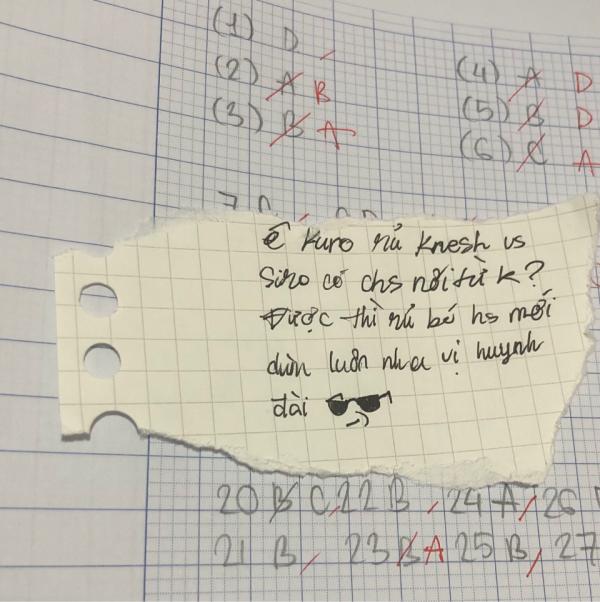 (1) D
(2) A B
(3) B A
(4) A D
(5) B D
(6) C A
Ê Kuro rủ Knesh vs
Siro có chs nối từ k?
Được thì rủ bé hs mới
luôn nha vị huynh
đài
20 B C, 22 B, 24 A, 26
21 B, 23 B A 25 B, 27